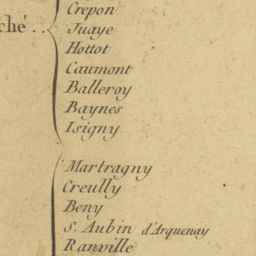 Crepon
ché ..
Juaye
Hottot
Caumont
Balleroy
Baynes
Isigny
Martragny
Creully
Beny
S. Aubin d'Arquenay
Ranville